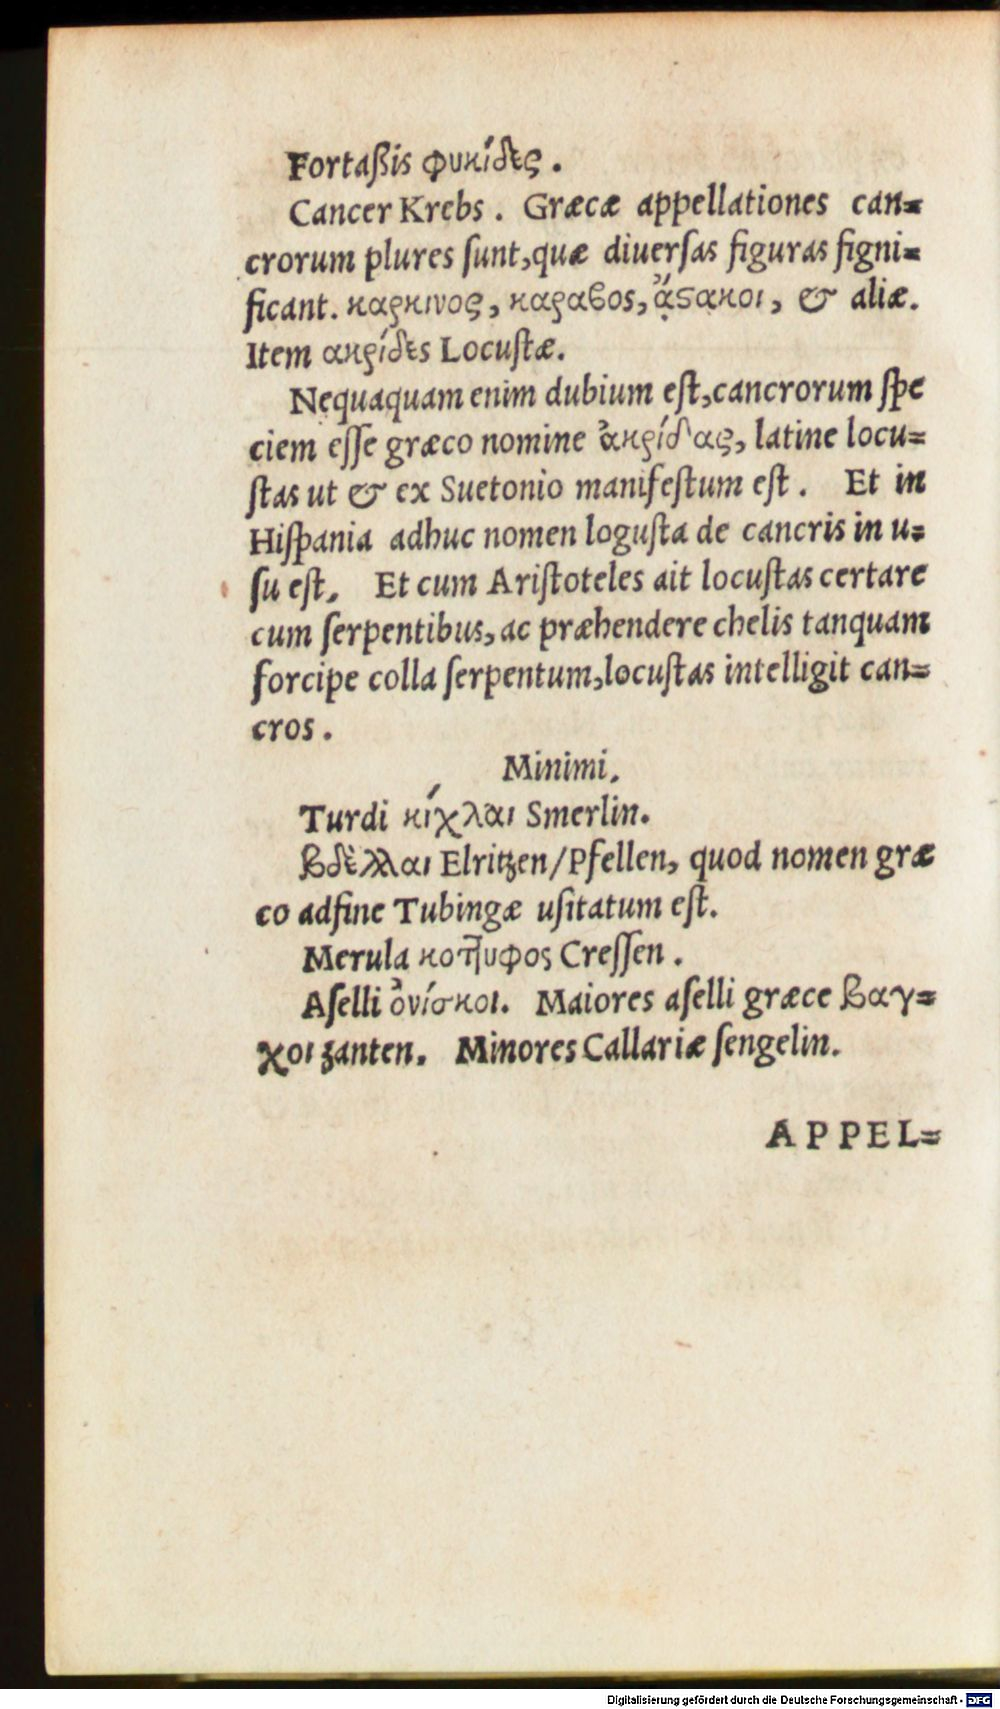 Fortaßis φυκίδες.
Cancer Krebs. Græcæ appellationes can=
crorum plures ſunt,quæ diuerſas figuras ſigni=
ficant. καρκινος, καραϐος, ἄϛακοι, & aliæ.
Item ακρίδες Locuſtæ.
Nequaquam enim dubium eſt,cancrorum ſpe
ciem eſſe græco nomine ἀκρίδας, latine locu=
ſtas ut & ex Suetonio manifeſtum eſt. Et in
Hiſpania adhuc nomen loguſta de cancris in u=
ſu eſt. Et cum Ariſtoteles ait locuſtas certare
cum ſerpentibus, ac præhendere chelis tanquam
forcipe colla ſerpentum,locuſtas intelligit can=
cros.
Minimi.
Turdi κίχλαι Smerlin.
βδὲλλαι Elritzen/Pfellen, quod nomen græ
co adfine Tubingæ uſitatum eſt.
Merula κοτ̃υφος Creſſen.
Aſelli ὀνίσκοι. Maiores aſelli græce βαγ=
χοι zanten. Minores Callariæ ſengelin.
APPEL=
Digitalisierung gefördert durch die Deutsche Forschungsgemeinschaft - DFG